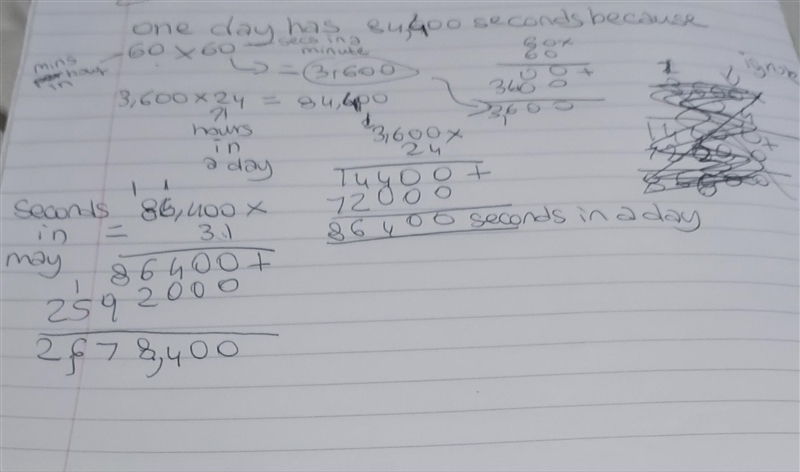 one day has 84,400 seconds because
mins in hour 60 x 60 secs in a minute
= 3,600
60x
60
00+
3600
3,600
ignore
3,600 x 24 = 84,400
hours
in
a day
3,600x
24
14400+
72000
86400 seconds in a day
seconds
in =
may
1 1
86,400x
31
86400+
1
2592000
2678,400